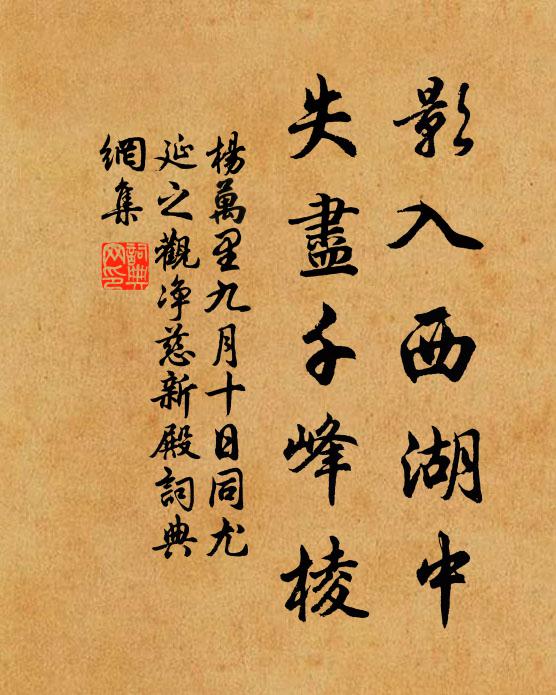 影入西湖中
失盡千峰棱
楊萬里九月十日同尤
延之觀净慈新殿詞典
網集
詞典
网印